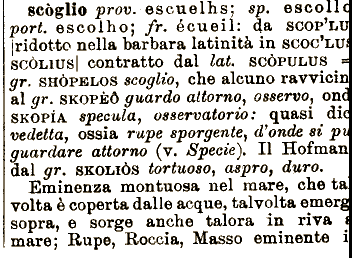 scòglio prov. escuelhs; sp. escollo
port. escolho; fr. écueil: da SCOP'LU
|ridotto nella barbara latinità in SCOC'LUS
SCÒLIUS| contratto dal lat. SCÒPULUS =
gr. SHÒPELOS scoglio, che alcuno ravvicin
al gr. SKOPÈÔ guardo attorno, osservo, ond
SKOPÍA specula, osservatorio: quasi dic
vedetta, ossia rupe sporgente, d'onde si pu
guardare attorno (v. Specie). Il Hofman
dal gr. SKOLIÒS tortuoso, aspro, duro.
Eminenza montuosa nel mare, che ta
volta è coperta dalle acque, talvolta emerg
sopra, e sorge anche talora in riva a
mare; Rupe, Roccia, Masso eminente i